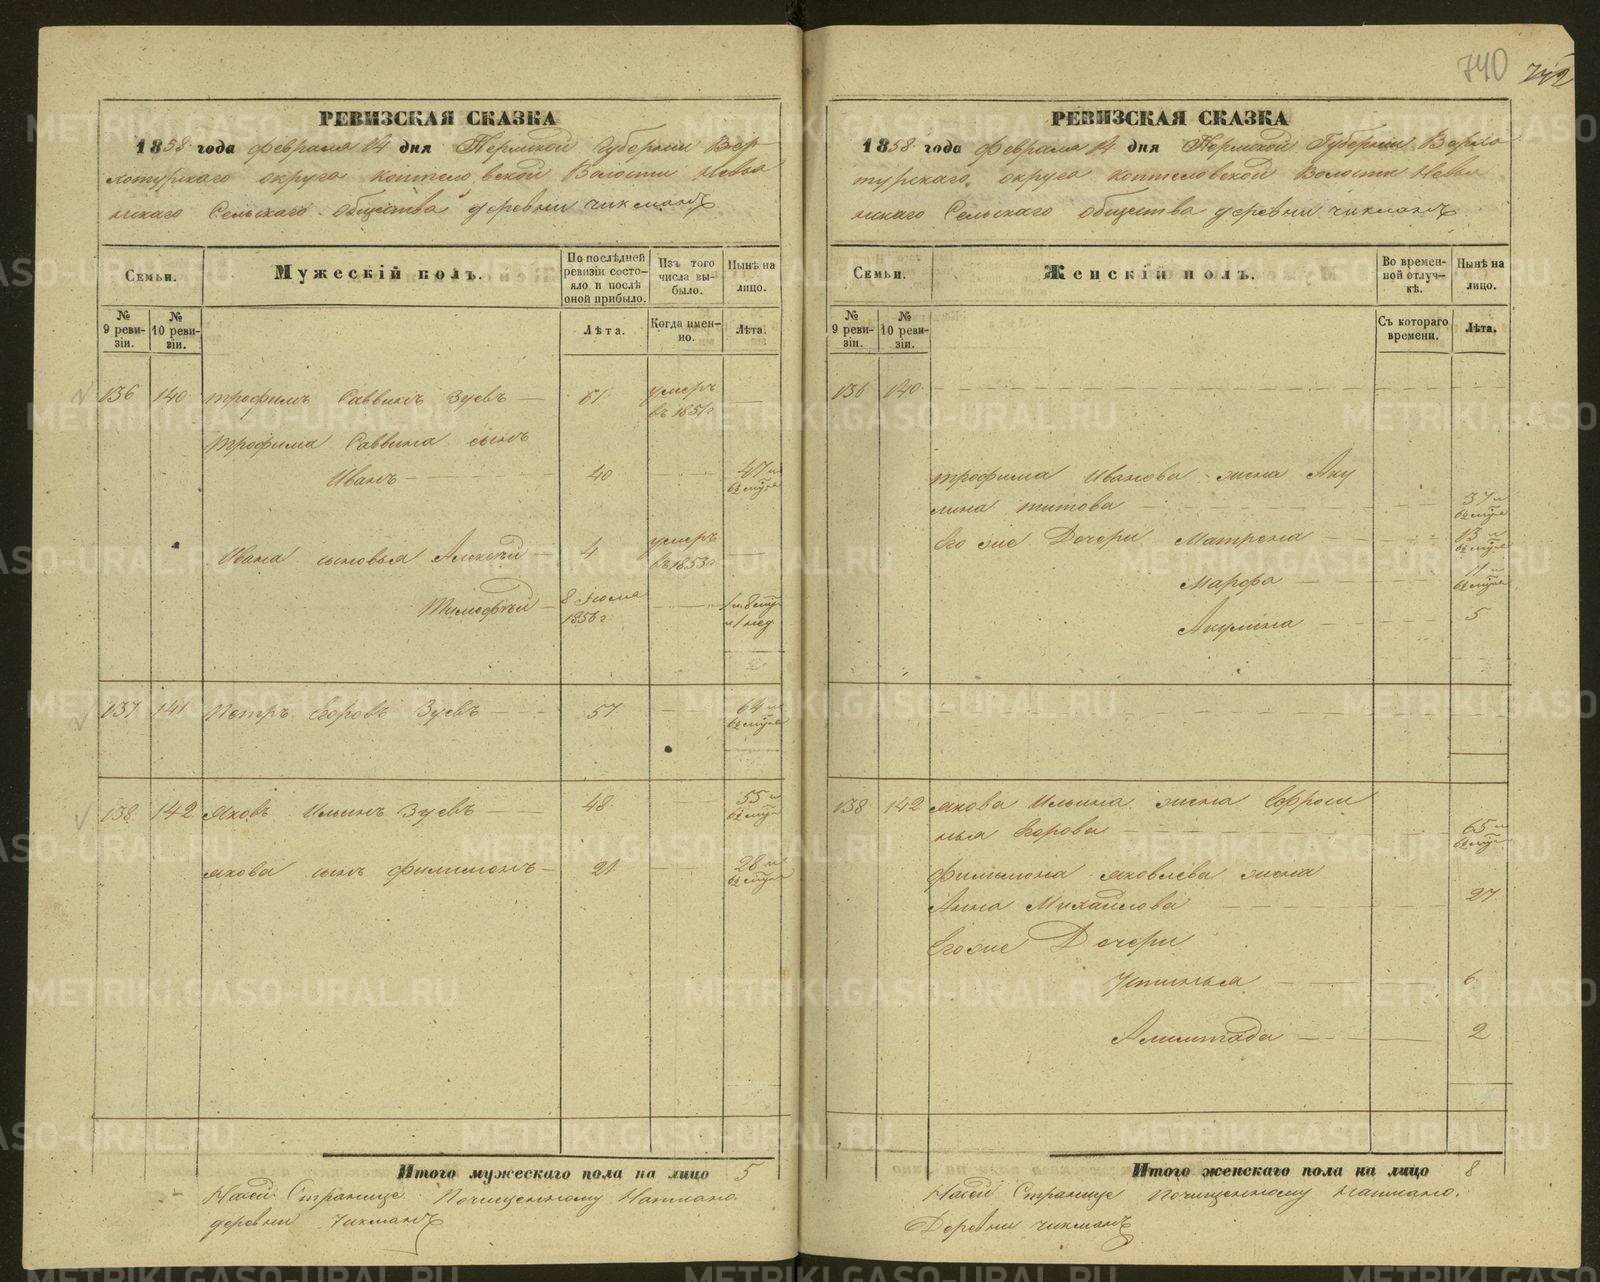 740 742
РЕВИЗСКАЯ СКАЗКА
1858 года февраля 14 дня Пермской Губернии Вер
хотурскаго округа коптеловской Волости Невья
нскаго Сельскаго общества деревни чикманъ
Семьи.
Мужескій полъ.
По послѣдней ревизіи состояло и послѣ оной прибыло.
Изъ того числа выбыло.
Нынѣ на лицо.
№ 9 ревизіи.
№ 10 ревизіи.
Лѣта.
Когда именно.
Лѣта.
136 140 трофимъ Саввинъ Зуевъ 61 умеръ въ 1851г
трофима Саввина сынъ
Иванъ 40 47 и 6½
Ивана сыновья Алексѣй 4 умеръ въ 1853г
Тимофѣй 8 1856г
137 141 Петръ Егоровъ Зуевъ 57 64 и 6½
138 142 яковъ Ильинъ Зуевъ 48 55 и 6½
якова сынъ филимонъ 21 28 и 6½
Итого мужескаго пола на лицо 5
Насей Странице Почищенному Написано
деревни Чикманъ
РЕВИЗСКАЯ СКАЗКА
1858 года февраля 14 дня Пермской Губерніи Верхо
турскаго округа коптеловской Волости Невья
нскаго Сельскаго общества деревни чикманъ
Семьи.
Женскій полъ.
Во временной отлучкѣ.
Нынѣ на лицо.
№ 9 ревизіи.
№ 10 ревизіи.
Съ котораго времени.
Лѣта.
136 140
трофима Иванова жена Аку
лина титова 37 и 6½
Его же Дочери Матрена 13 и 6½
Марфа 11 и 6½
Акулина 5
138 142 якова Ильина жена Ефроси
нья Егорова 65 и 6½
Филимона яковлева жена
Анна Михайлова 27
Егоже Дочери
Устинья 6
2
Итого женскаго пола на лицо 8
Насей Странице Почищенному Написано.
Деревни чикманъ
METRIKI.GASO-URAL.RU